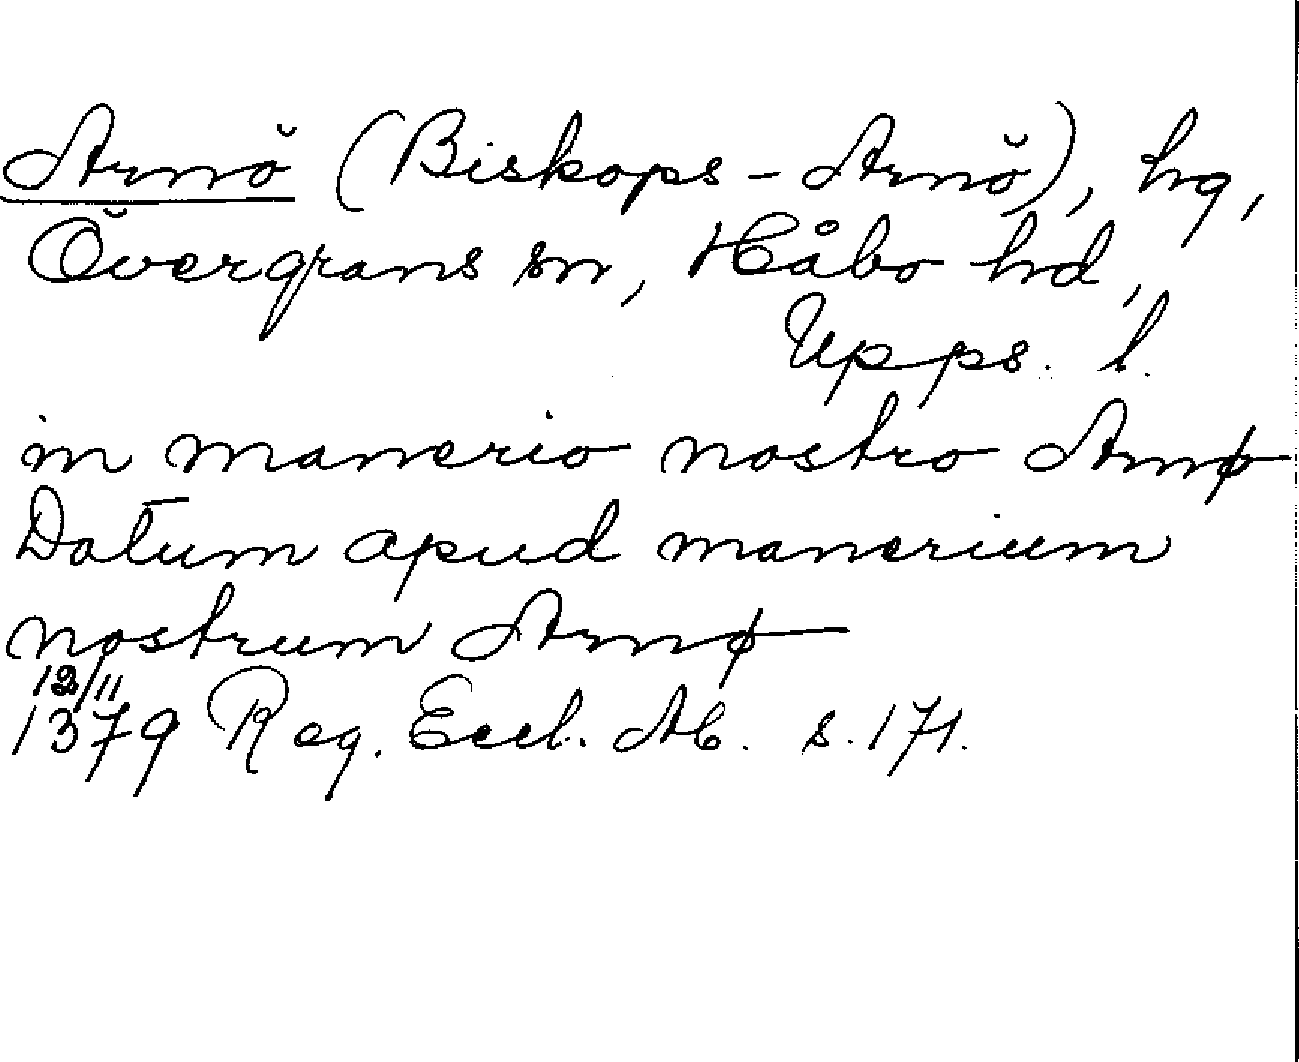 Arnö (Biskops-Arnö), hg,
Övergrans sn, Håbo hd,
Upps. l.
in manerio nostro Arnø
Datum apud manerium
nostrum Arnø
12/11
1379 Reg. Eccl. Ab. s. 171.